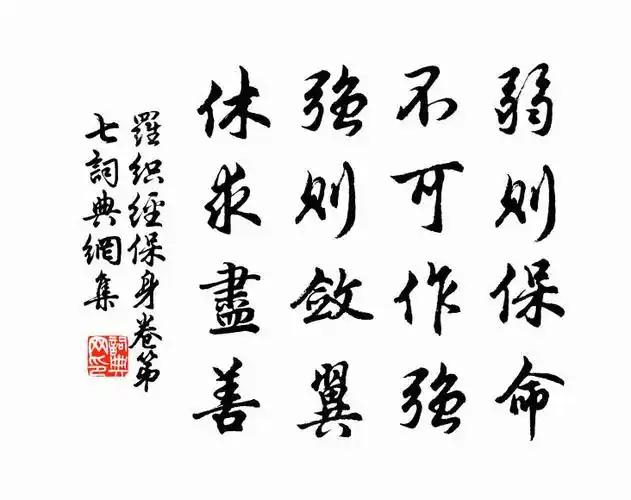 弱則保命
不可作強
強則斂翼
休求盡善
羅織經保身卷第
七詞典網集
詞典网印